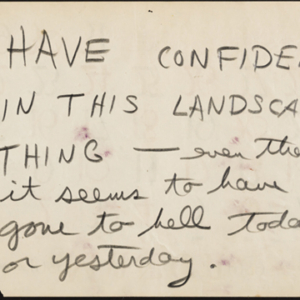 HAVE CONFIDE
IN THIS LANDSCA
THING — even the
it seems to have
gone to hell toda
or yesterday.